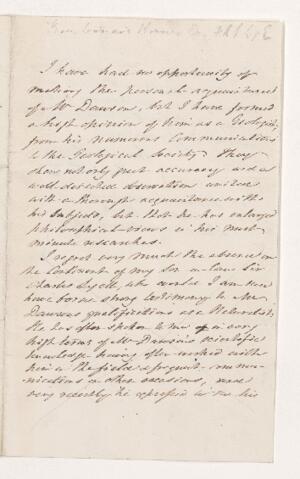 From Leonard Horner Esq. F.R.S.
I have had no opportunity of
making the personal acquaintance
of Mr Dawson, but I have formed
a high opinion of him as a Geologist,
from his numerous Communications
to the Geological Society. They
show not only great accuracy and
well detailed observation united
with a thorough acquaintance with
his subjects, but that he has enlarged
philosophical views in his most
minute researches.
I regret very much the absence on
the Continent of my Son in-law Sir
Charles Lyell, who would I am sure
have borne strong testimony to Mr
Dawson's qualifications as a Naturalist.
He has often spoken to me in very
high terms of Mr Dawson's scientific
knowledge having often worked with
him in the field & frequent commu-
nications on other occasions, and
very recently he expressed to me his